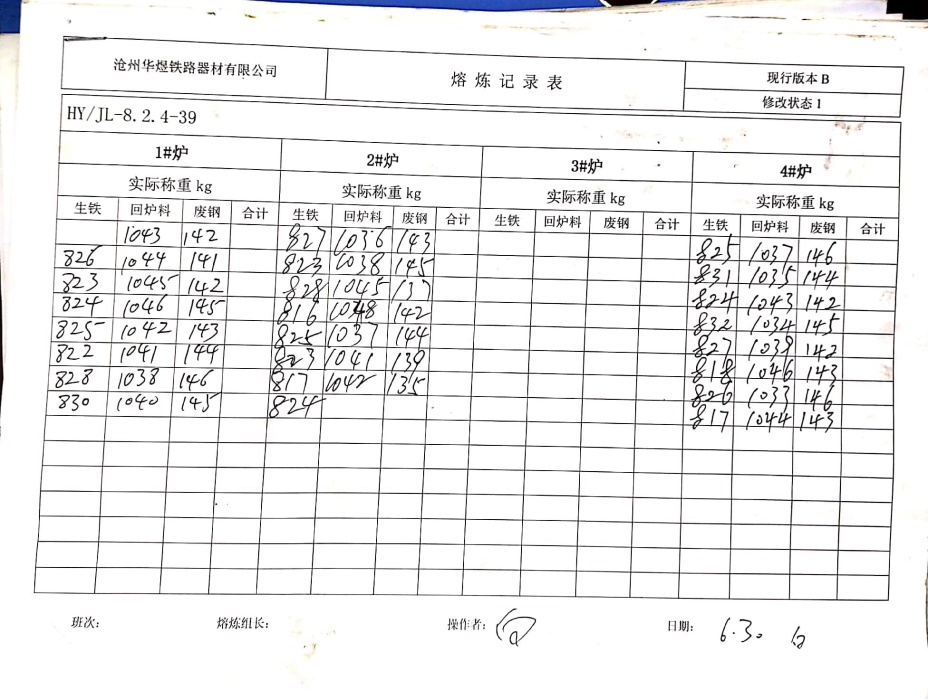 沧州华煜铁路器材有限公司 熔炼记录表 现行版本 B
修改状态 1
HY/JL-8.2.4-39
1#炉 2#炉 3#炉 4#炉
实际称重 kg 实际称重 kg 实际称重 kg 实际称重 kg
生铁 回炉料 废钢 合计 生铁 回炉料 废钢 合计 生铁 回炉料 废钢 合计 生铁 回炉料 废钢 合计
1043 142 827 1036 143 825 1037 146
826 1044 141 823 1038 145 831 1035 144
823 1045 142 828 1045 137 824 1043 142
824 1046 145 816 1048 142 832 1034 145
825 1042 143 825 1037 144 827 1039 142
822 1041 144 823 1041 139 818 1046 143
828 1038 146 817 1042 135 826 1033 146
830 1040 145 824 817 1044 143
班次: 熔炼组长: 操作者: 日期: 6.30 白